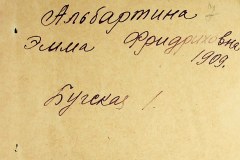 Альбартина
Эмма Фридриховна
1909.
Бугская 1.